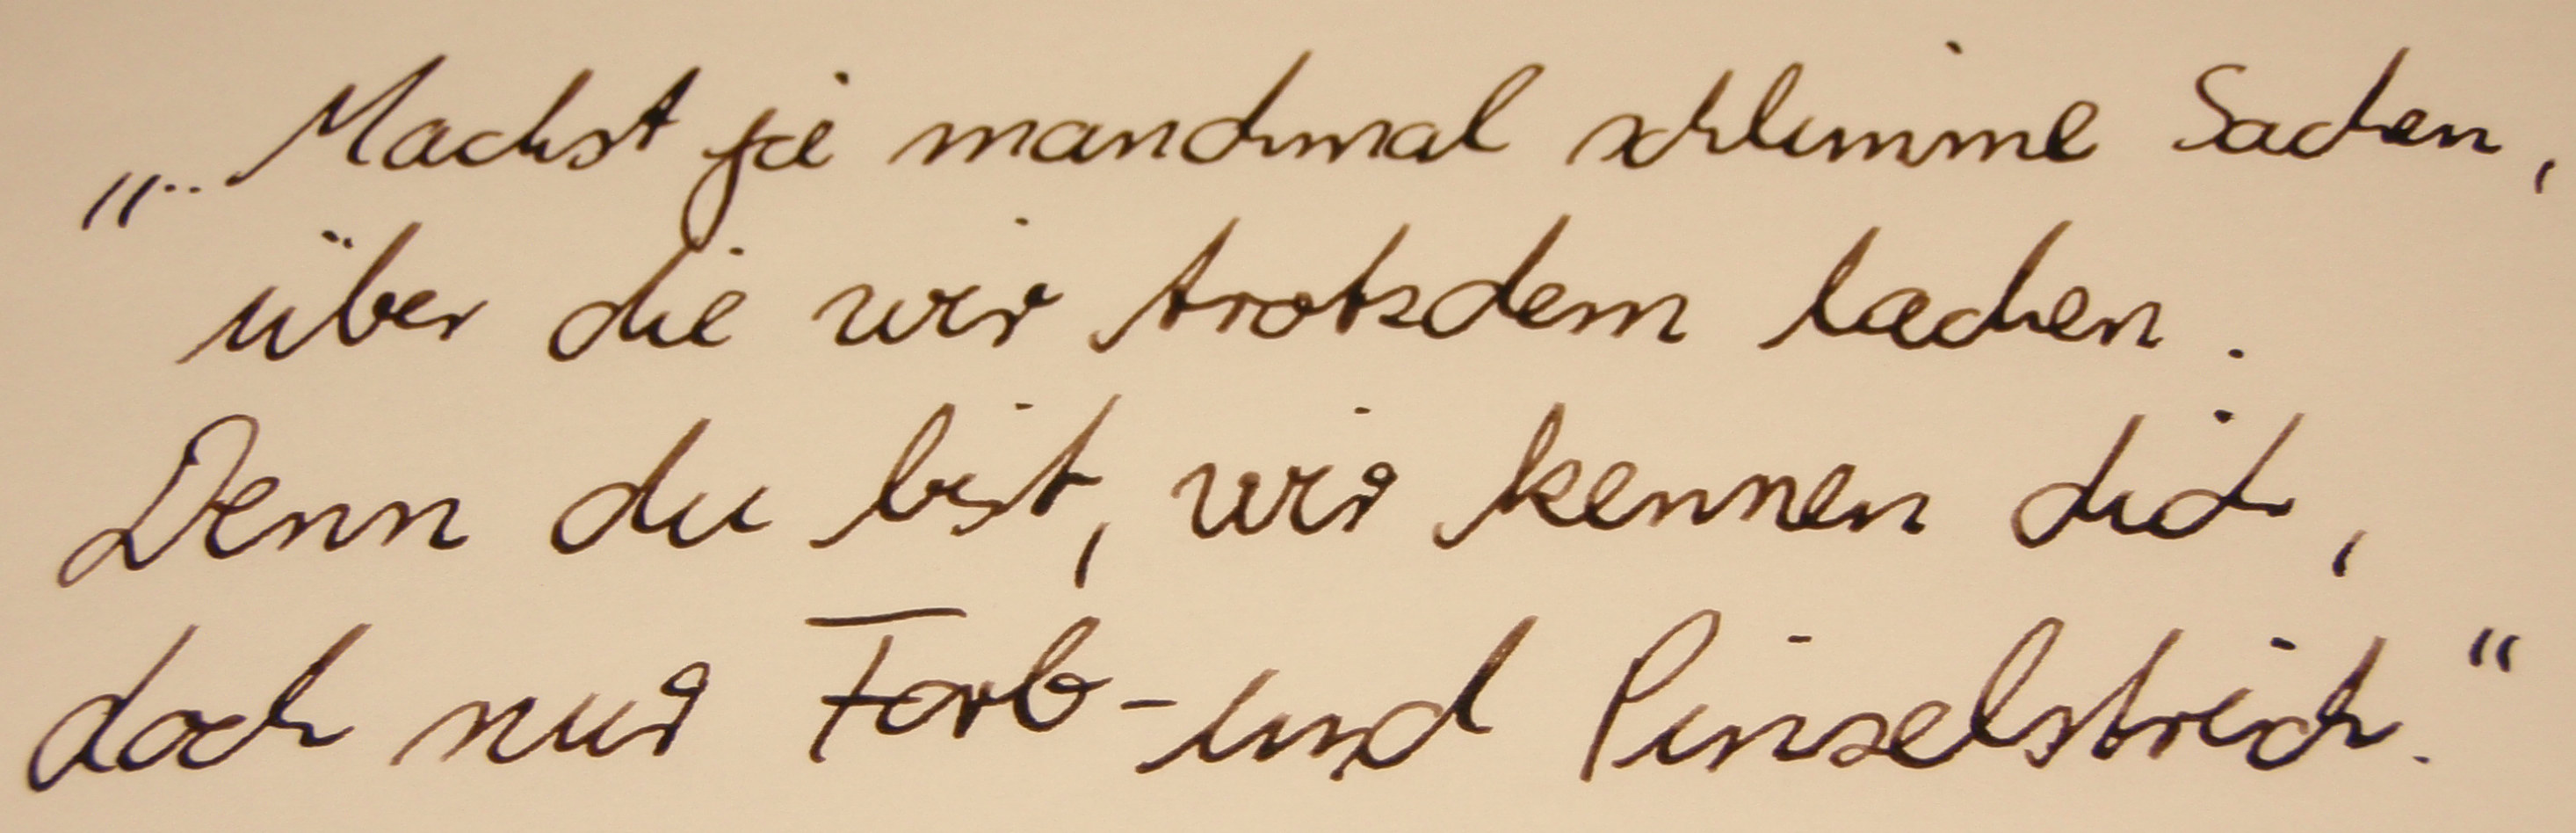 „..Machst ja manchmal schlimme Sachen,
über die wir trotzdem lachen.
Denn du bist, wir kennen dich,
doch nur Farb- und Pinselstrich.“